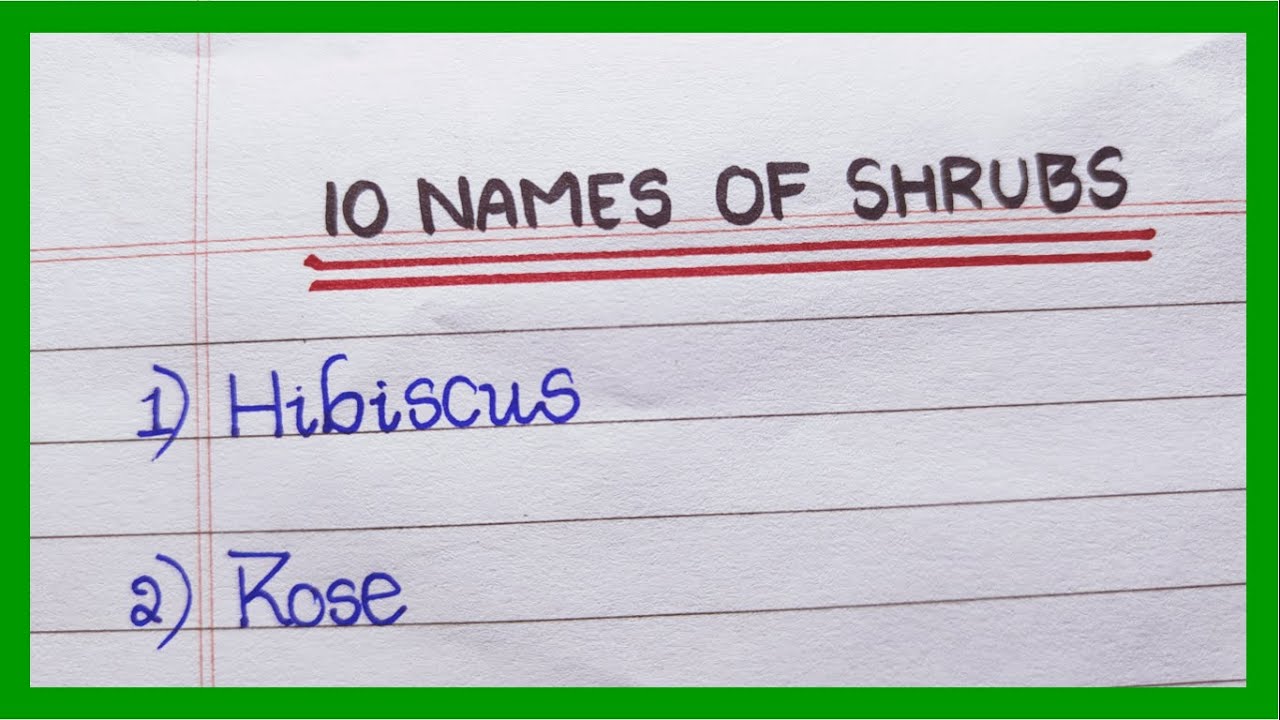 10 NAMES OF SHRUBS
1) Hibiscus
2) Rose